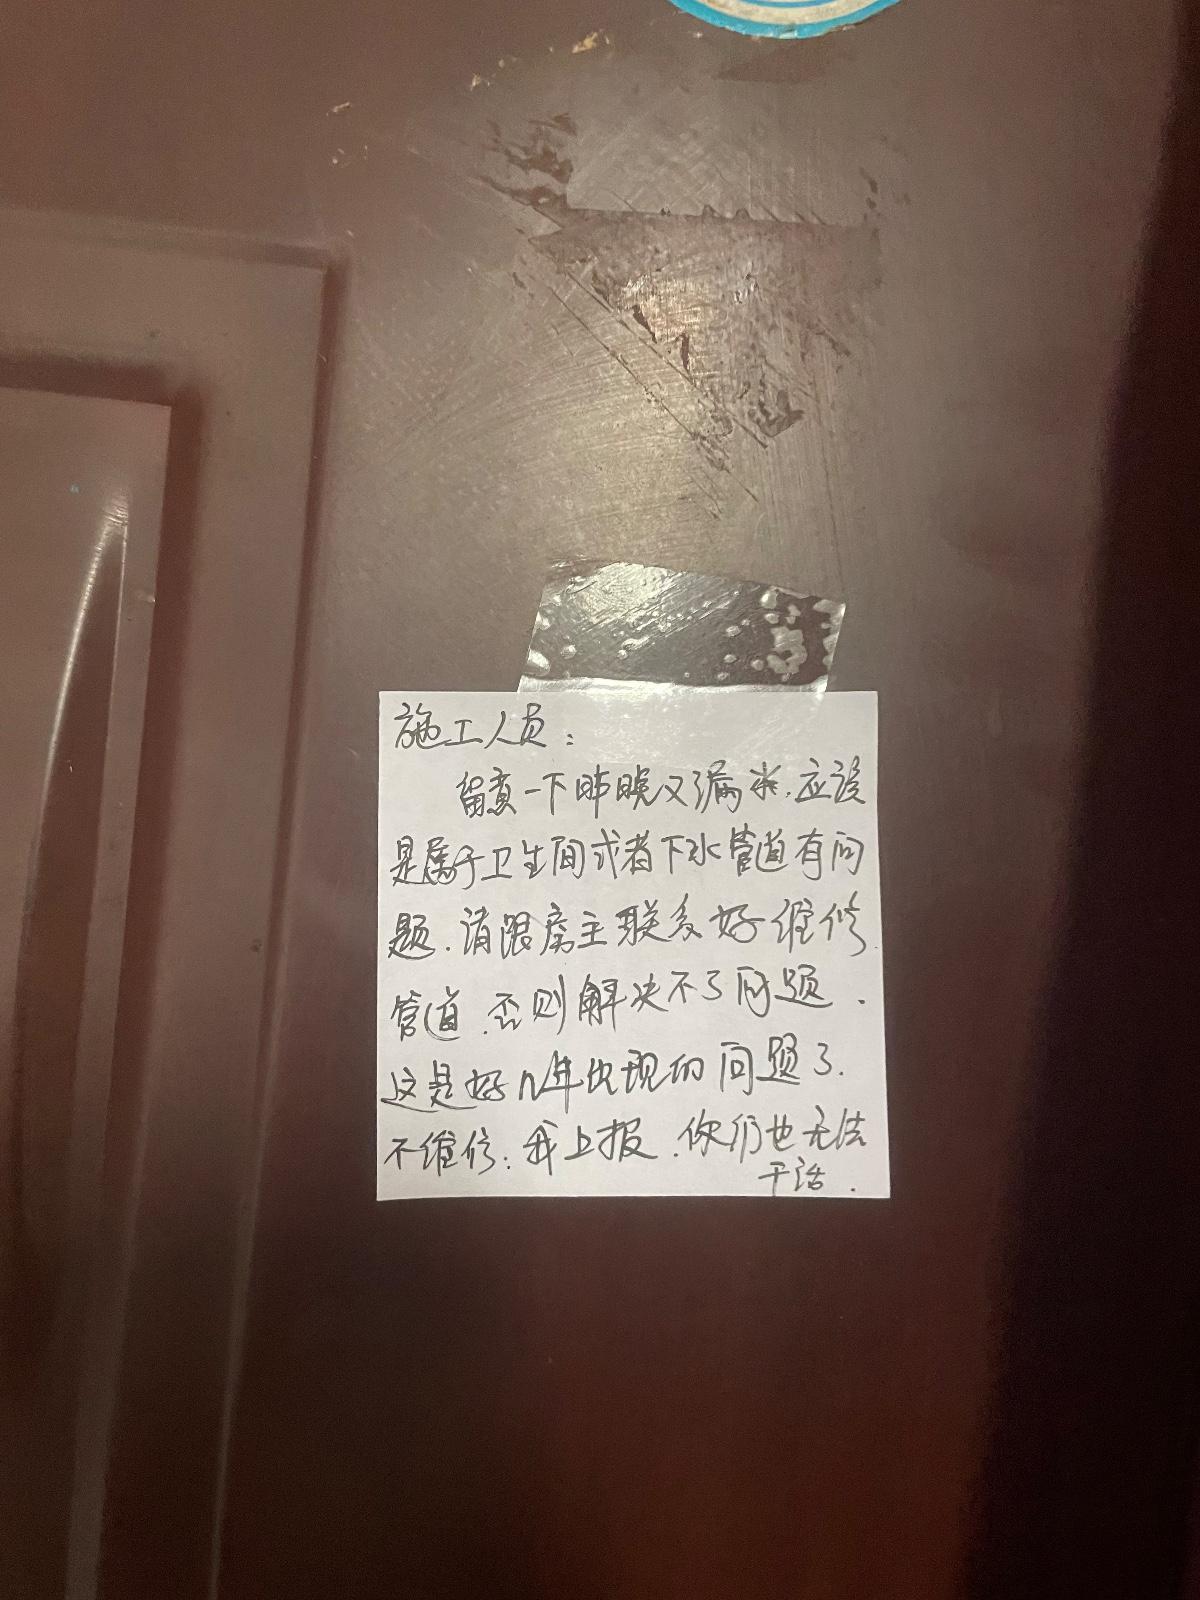 施工人员：
留意一下昨晚又漏水.应该
是属于卫生间或者下水管道有问
题.请跟房主联系好维修
管道.否则解决不了问题.
这是好几年出现的问题了.
不维修:我上报.你们也无法
干活.